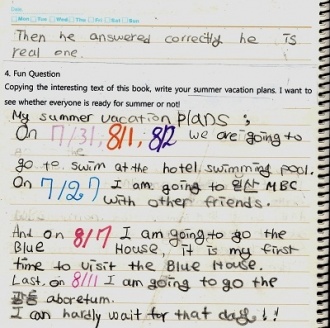 Date
Mon Tue Wed Thu Fri Sat Sun
Then he answered correctly he is
real one.
4. Fun Question
Copying the interesting text of this book, write your summer vacation plans. I want to
see whether everyone is ready for summer or not!
My summer vacation plans :
On 7/31, 8/1, 8/2 we are going to
go to swim at the hotel swimming pool.
On 7/27 I am going to 일산 MBC
with other friends.
And on 8/7 I am going to go the
Blue House, it is my first
time to visit the Blue House.
Last, on 8/11 I am going to go the
aboretum.
I can hardly wait for that days!!